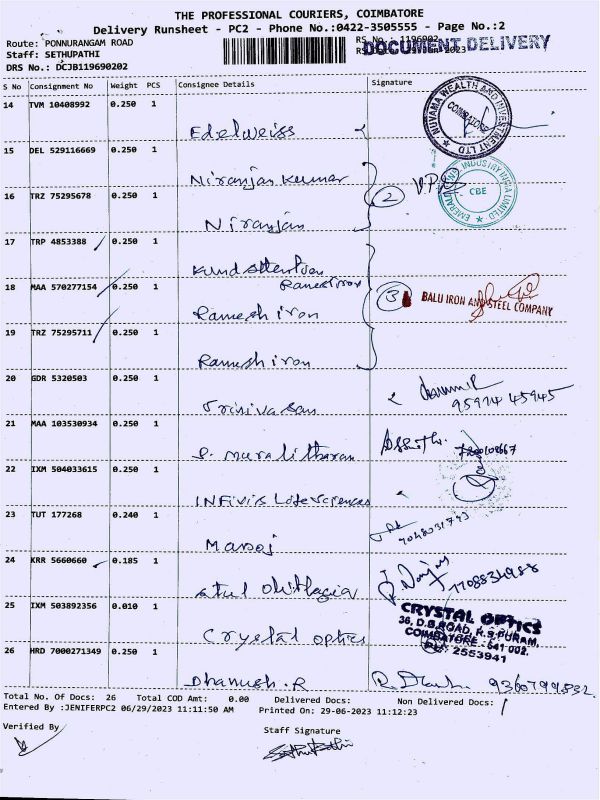 THE PROFESSIONAL COURIERS, COIMBATORE
Delivery Runsheet - PC2 - Phone No.:0422-3505555 - Page No.:2
Route: PONNURANGAM ROAD
Staff: SETHUPATHI
DRS No.: DCJB119690202
DOCUMENT DELIVERY
S No Consignment No Weight PCS Consignee Details Signature
14 TVM 10408992 0.250 1
Edelweiss
NUVAMA WEALTH AND INVESTMENT LTD COIMBATORE
15 DEL 529116669 0.250 1
Niranjan Kumar
16 TRZ 75295678 0.250 1 2
CBE
Niranjan
17 TRP 4853388 0.250 1
Ramesh iron
18 MAA 570277154 0.250 1 3 BALU IRON AND STEEL COMPANY
Ramesh iron
19 TRZ 75295711 0.250 1
Ramesh iron
20 GDR 5320503 0.250 1
Srinivasan 95974 45945
21 MAA 103530934 0.250 1
S. Muralitharan
22 IXM 504033615 0.250 1
INFivis Life Sciences
23 TUT 177268 0.240 1
Manoj
24 KRR 5660660 0.185 1
7708834988
25 IXM 503892356 0.010 1
CRYSTAL OPTICS
36, D.B.ROAD, R.S.PURAM,
COIMBATORE - 641 002.
PH: 2553941
Crystal optics
26 HRD 7000271349 0.250 1
Dhanush.R 9360799832
Total No. Of Docs: 26 Total COD Amt: 0.00 Delivered Docs: Non Delivered Docs:
Entered By :JENIFERPC2 06/29/2023 11:11:50 AM Printed On: 29-06-2023 11:12:23
Verified By Staff Signature